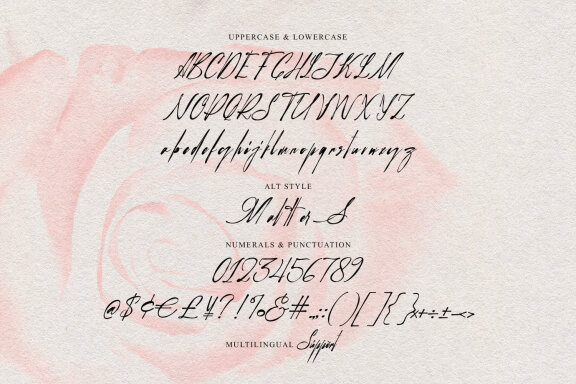 UPPERCASE & LOWERCASE
ABCDEFGHIJKLM
NOPQRSTUVWXYZ
abcdefghijklmnopqrstuvwxyz
ALT STYLE
NUMERALS & PUNCTUATION
0123456789
@$¢€£¥?!%&#.,;:()[]{}×+÷±-<>
MULTILINGUAL Support